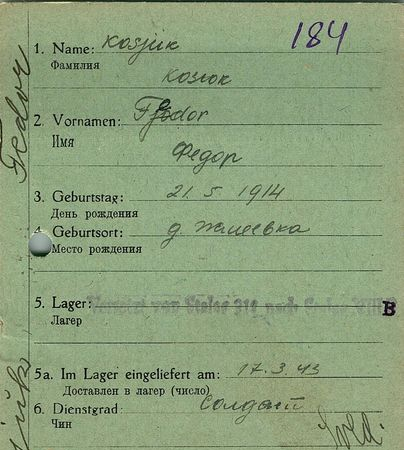 184
1. Name: Kosjuk
Фамилия
Косюк
2. Vornamen: Fjodor
Имя
Федор
3. Geburtstag: 21. 5. 1914
День рождения
4. Geburtsort: д
Место рождения
5. Lager: von Stalag nach B
Лагерь
5a. Im Lager eingeliefert am: 17. 3. 43
Доставлен в лагерь (число)
6. Dienstgrad: Солдат
Чин
Fedor